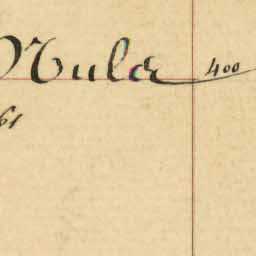 Mula 400
61